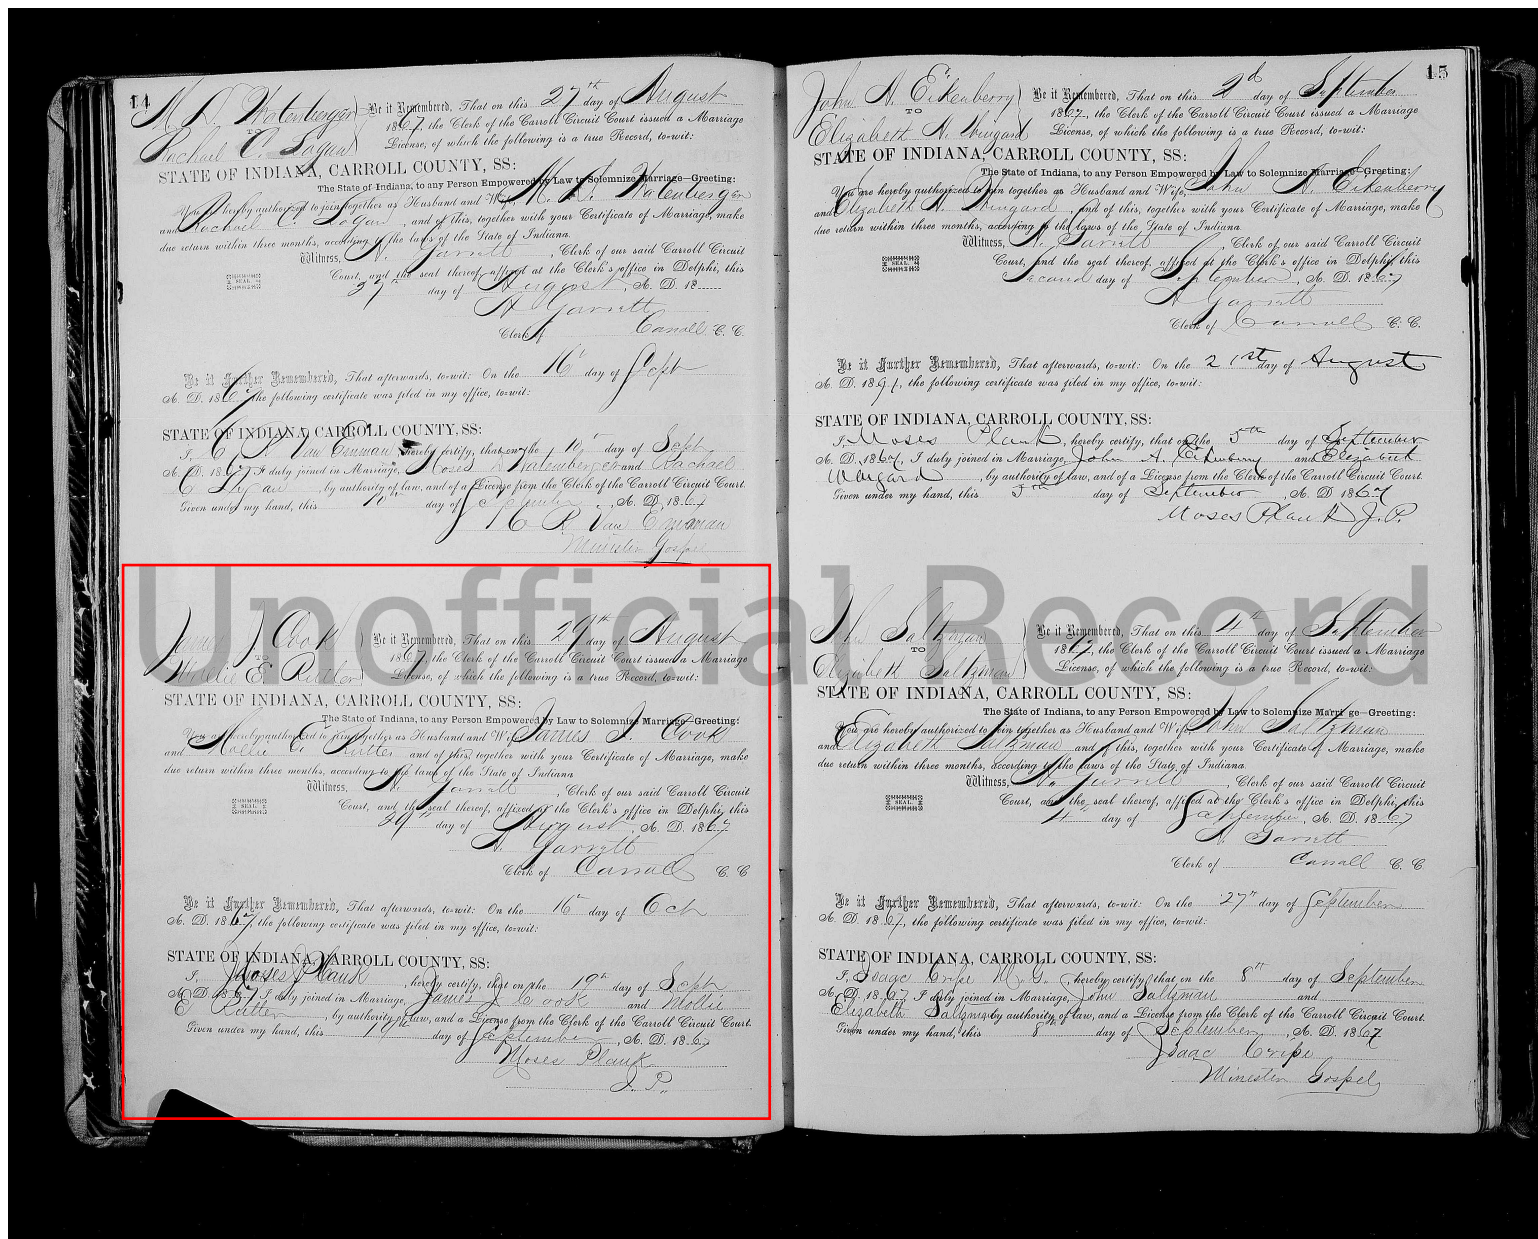 14
M. D. Watenberger
TO
Rachael C. Logan
Be it Remembered, That on this 27th day of August
1867, the Clerk of the Carroll Circuit Court issued a Marriage
License, of which the following is a true Record, to-wit:
STATE OF INDIANA, CARROLL COUNTY, SS:
The State of Indiana, to any Person Empowered by Law to Solemnize Marriage—Greeting:
You are hereby authorized to join together as Husband and Wife, M. D. Watenberger
and Rachael C. Logan, and of this, together with your Certificate of Marriage, make
due return within three months, according to the laws of the State of Indiana.
Witness, A. Garrett, Clerk of our said Carroll Circuit
SEAL
Court, and the seal thereof, affixed at the Clerk's office in Delphi, this
27th day of August, A. D. 18
A Garrett
Clerk of Carroll C. C.
Be it Further Remembered, That afterwards, to-wit: On the 16th day of Sept
A. D. 1867, the following certificate was filed in my office, to-wit:
STATE OF INDIANA, CARROLL COUNTY, SS:
I, C. R. Van Emman, hereby certify, that on the 10th day of Sept
A. D. 1867, I duly joined in Marriage, Moses D Watenberger and Rachael
C Logan, by authority of law, and of a License from the Clerk of the Carroll Circuit Court.
Given under my hand, this 10th day of September, A. D. 1867
C R Van Emman
Minister Gospel
James J Cook
TO
Mollie E. Rutter
Be it Remembered, That on this 29th day of August
1867, the Clerk of the Carroll Circuit Court issued a Marriage
License, of which the following is a true Record, to-wit:
STATE OF INDIANA, CARROLL COUNTY, SS:
The State of Indiana, to any Person Empowered by Law to Solemnize Marriage—Greeting:
You are hereby authorized to join together as Husband and Wife, James J. Cook
and Mollie E. Rutter and of this, together with your Certificate of Marriage, make
due return within three months, according to the laws of the State of Indiana
Witness, A. Garrett, Clerk of our said Carroll Circuit
SEAL
Court, and the seal thereof, affixed at the Clerk's office in Delphi, this
29th day of August, A. D. 1867
A. Garrett
Clerk of Carroll C. C
Be it Further Remembered, That afterwards, to-wit: On the 16th day of Oct
A. D. 1867, the following certificate was filed in my office, to-wit:
STATE OF INDIANA, CARROLL COUNTY, SS:
I, Moses Plank, hereby certify, that on the 19th day of Sept
A. D. 1867, I duly joined in Marriage, James J. Cook and Mollie
E Rutter, by authority of law, and a License from the Clerk of the Carroll Circuit Court.
Given under my hand, this 19th day of September, A. D. 1867
Moses Plank
J. P.
15
John A. Eikenberry
TO
Elizabeth A. Wingard
Be it Remembered, That on this 2d day of September
1867, the Clerk of the Carroll Circuit Court issued a Marriage
License, of which the following is a true Record, to-wit:
STATE OF INDIANA, CARROLL COUNTY, SS:
The State of Indiana, to any Person Empowered by Law to Solemnize Marriage—Greeting:
You are hereby authorized to join together as Husband and Wife, John A. Eikenberry
and Elizabeth A. Wingard, and of this, together with your Certificate of Marriage, make
due return within three months, according to the laws of the State of Indiana.
Witness, A. Garrett, Clerk of our said Carroll Circuit
SEAL
Court, and the seal thereof, affixed at the Clerk's office in Delphi, this
Second day of September, A. D. 1867
A Garrett
Clerk of Carroll C. C.
Be it Further Remembered, That afterwards, to-wit: On the 21st day of August
A. D. 1891, the following certificate was filed in my office, to-wit:
STATE OF INDIANA, CARROLL COUNTY, SS:
I, Moses Plank, hereby certify, that on the 5th day of September
A. D. 1867, I duly joined in Marriage, John A. Eikenberry and Elizabeth
Wingard, by authority of law, and of a License from the Clerk of the Carroll Circuit Court.
Given under my hand, this 5th day of September, A. D. 1867
Moses Plank J. P.
John Saltzman
TO
Elizabeth Saltzman
Be it Remembered, That on this 4th day of September
1867, the Clerk of the Carroll Circuit Court issued a Marriage
License, of which the following is a true Record, to-wit:
STATE OF INDIANA, CARROLL COUNTY, SS:
The State of Indiana, to any Person Empowered by Law to Solemnize Marriage—Greeting:
You are hereby authorized to join together as Husband and Wife, John Saltzman
and Elizabeth Saltzman and of this, together with your Certificate of Marriage, make
due return within three months, according to the laws of the State of Indiana.
Witness, A. Garrett, Clerk of our said Carroll Circuit
SEAL
Court, and the seal thereof, affixed at the Clerk's office in Delphi, this
4th day of September, A. D. 1867
A. Garrett
Clerk of Carroll C. C
Be it Further Remembered, That afterwards, to-wit: On the 27th day of September
A. D. 1867, the following certificate was filed in my office, to-wit:
STATE OF INDIANA, CARROLL COUNTY, SS:
I, Isaac Cripe M. G., hereby certify, that on the 8th day of September
A. D. 1867, I duly joined in Marriage, John Saltzman and
Elizabeth Saltzman, by authority of law, and a License from the Clerk of the Carroll Circuit Court.
Given under my hand, this 8th day of September, A. D. 1867
Isaac Cripe
Minister Gospel
Unofficial Record